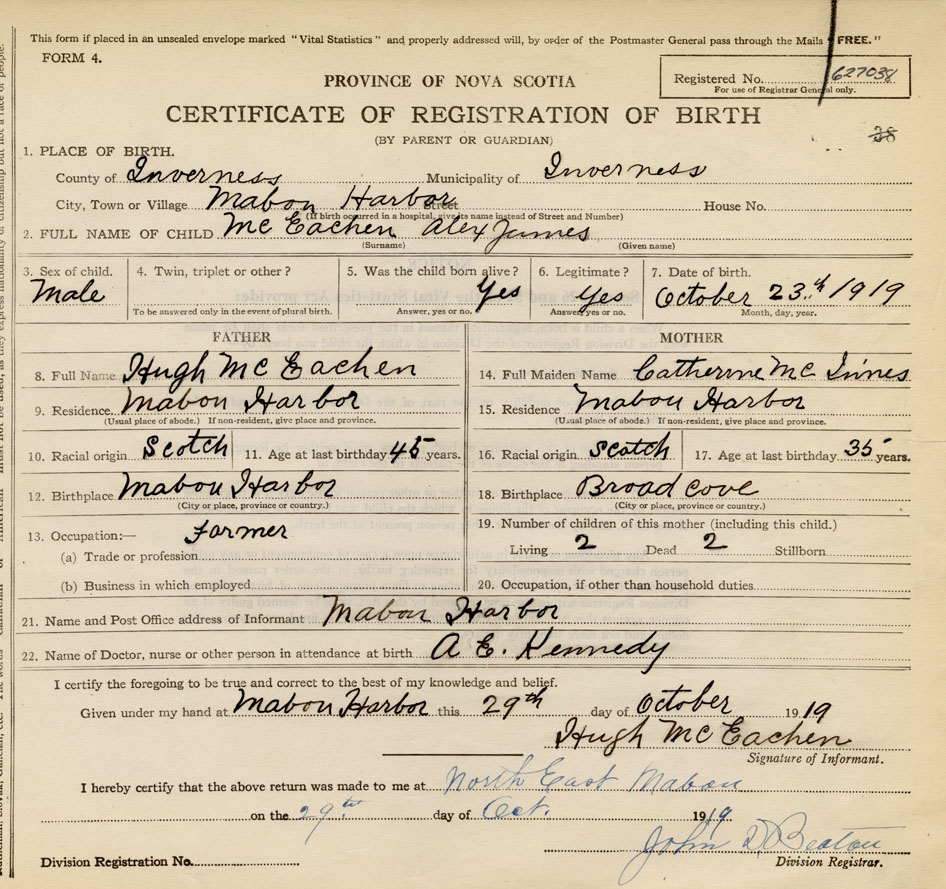 This form if placed in an unsealed envelope marked "Vital Statistics" and properly addressed will, by order of the Postmaster General pass through the Mails "FREE."
FORM 4.
PROVINCE OF NOVA SCOTIA
Registered No. 627038
For use of Registrar General only.
CERTIFICATE OF REGISTRATION OF BIRTH
(BY PARENT OR GUARDIAN)
38
1. PLACE OF BIRTH.
County of Inverness Municipality of Inverness
City, Town or Village Mabou Harbor Street House No.
(If birth occurred in a hospital, give its name instead of Street and Number)
2. FULL NAME OF CHILD McEachen Alex James
(Surname) (Given name)
3. Sex of child. 4. Twin, triplet or other? 5. Was the child born alive? 6. Legitimate? 7. Date of birth.
Male Yes Yes October 23th 1919
To be answered only in the event of plural birth. Answer, yes or no. Answer, yes or no. Month, day, year.
FATHER MOTHER
8. Full Name Hugh McEachen 14. Full Maiden Name Catherine Mc Innes
9. Residence. Mabou Harbor 15. Residence Mabou Harbor
(Usual place of abode.) If non-resident, give place and province. (Usual place of abode.) If non-resident, give place and province.
10. Racial origin Scotch 11. Age at last birthday 45 years. 16. Racial origin Scotch 17. Age at last birthday 35 years.
12. Birthplace Mabou Harbor 18. Birthplace Broad cove
(City or place, province or country.) (City or place, province or country.)
13. Occupation:— Farmer 19. Number of children of this mother (including this child.)
(a) Trade or profession Living 2 Dead 2 Stillborn
(b) Business in which employed 20. Occupation, if other than household duties
21. Name and Post Office address of Informant Mabou Harbor
22. Name of Doctor, nurse or other person in attendance at birth A E. Kennedy
I certify the foregoing to be true and correct to the best of my knowledge and belief.
Given under my hand at Mabou Harbor this 29th day of October 1919
Hugh McEachen
Signature of Informant.
I hereby certify that the above return was made to me at North East Mabou
on the 29th day of Oct. 1919.
John D Beaton
Division Registration No. Division Registrar.